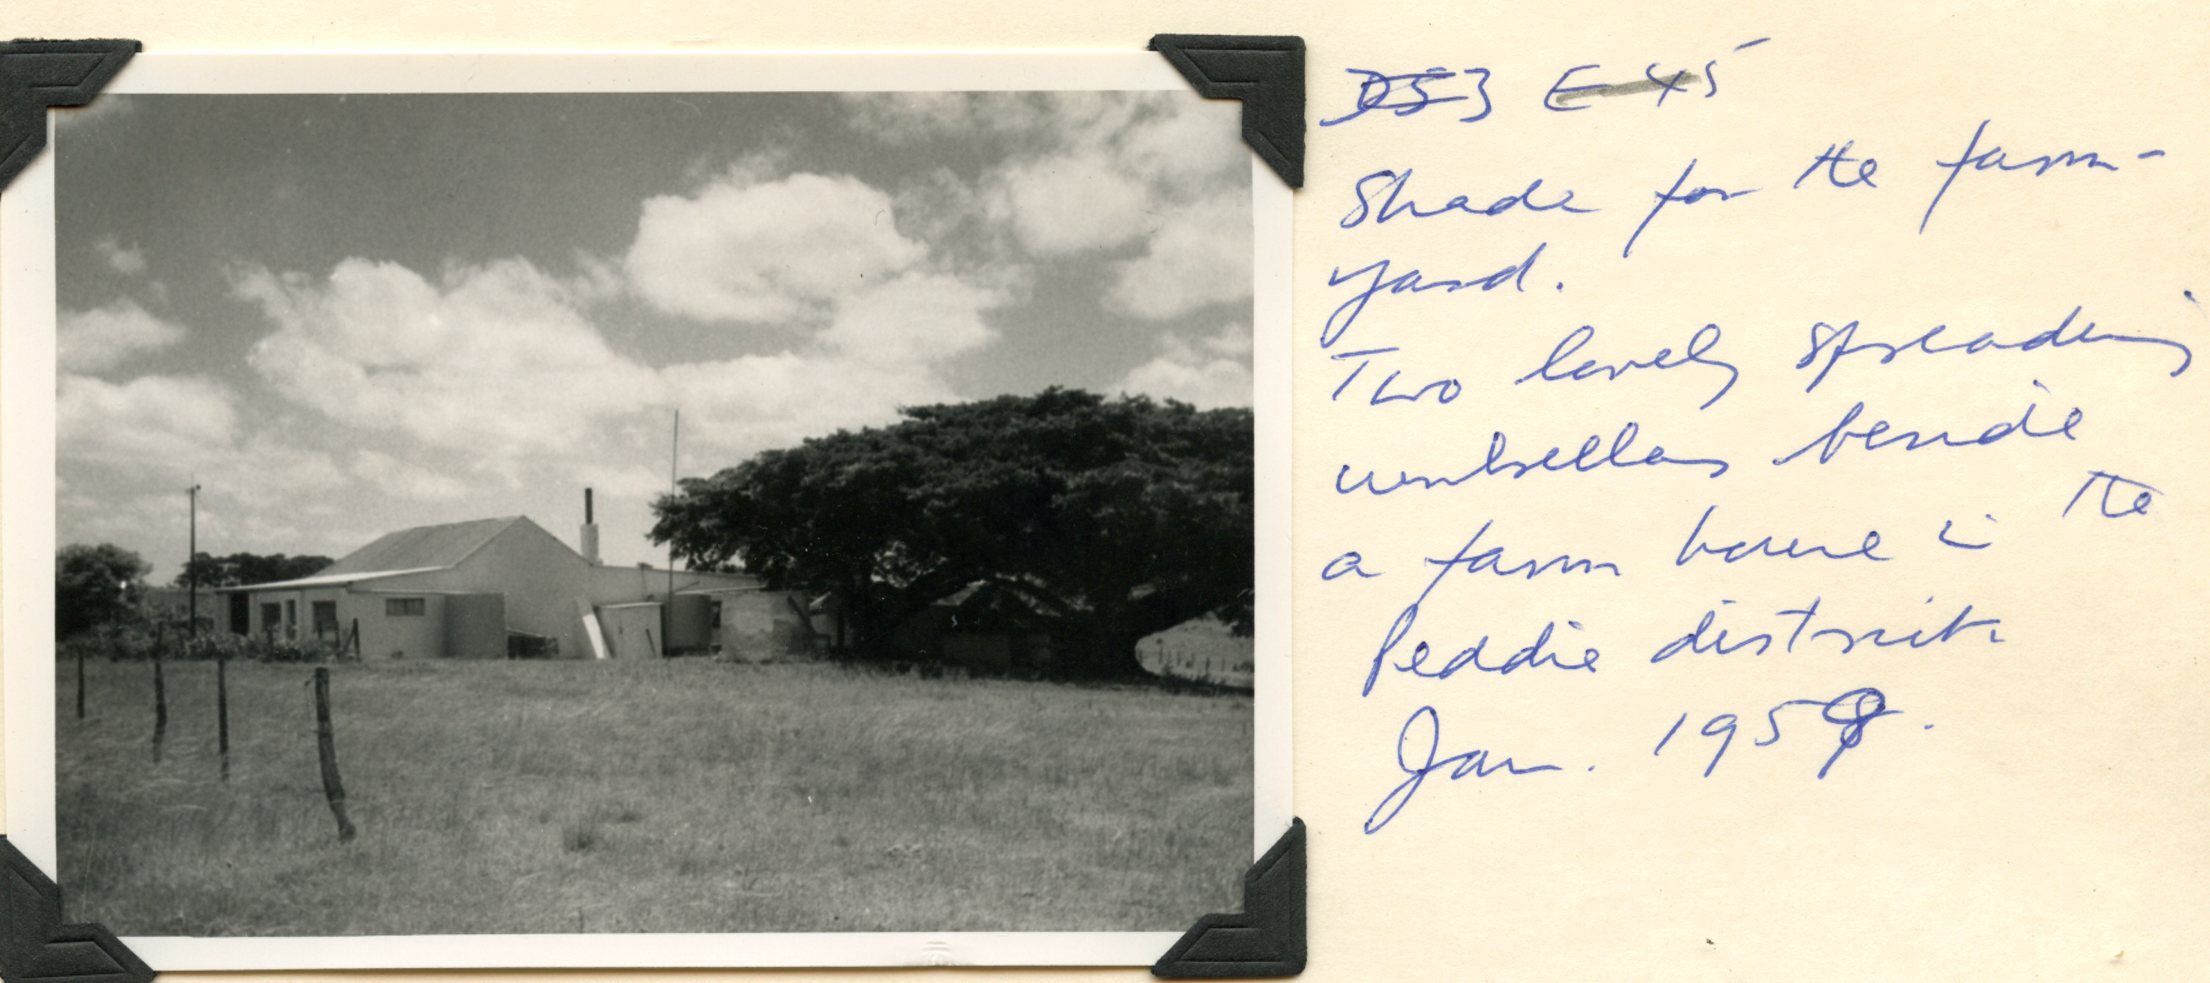 E 45
Shade for the farm-
yard.
Two lovely spreading
umbrellas beside
a farm house in the
Peddie district
Jan. 1959.